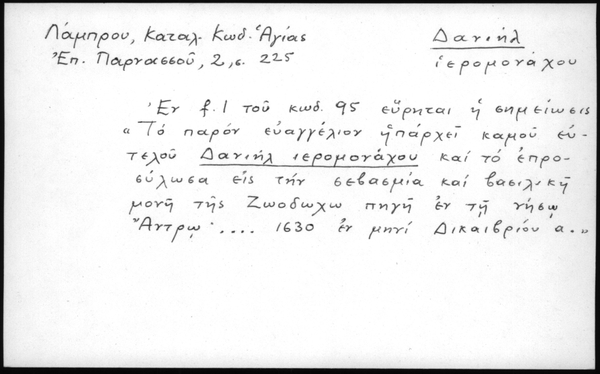 Λάμπρου, Καταλ. Κωδ. Ἁγίας
Ἐπ. Παρνασσοῦ, 2, σ. 225
Δανιήλ
ἱερομονάχου
Ἐν f. 1 τοῦ κωδ. 95 εὕρηται ἡ σημείωσις
«Τό παρόν εὐαγγέλιον ἡπάρχεῖ καμοῦ εὐ-
τελοῦ Δανιήλ ιερομονάχου καί τό ἐπρο-
σύλωσα εἰς τήν σεβασμία καί βασιλική
μονή τῆς Ζωοδωχω πηγή ἐν τῇ νήσῳ
Ἄντρῳ .... 1630 ἐν μηνί Δικαιβρίου α.»